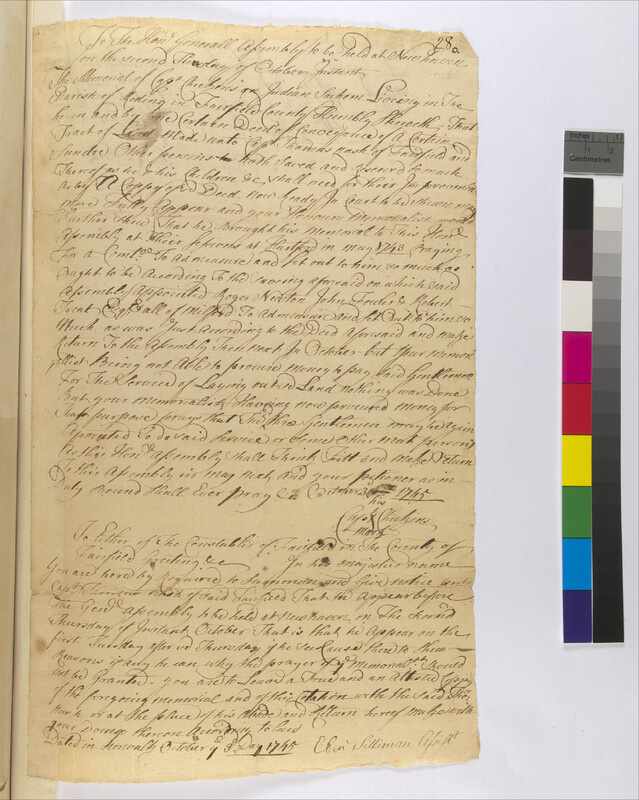 28a
To The Hon.ble Generall Assembly to be held at Newhaven
on the second Thursday of October Instant
The Memorial of Capt Chickens an Indian Sachem Liveing in The
Parish of Reding in Fairfield County Humbly Sheweth, That
he in and by one Certain Deed of Conveyance of A Certain
Tract of Land made unto Capt Thomas nash of Fairfield and
Sundre Other persons hath Saved and reserv'd so much
Thereof as he & his Children &c shall need for their Improvement
as by A Coppy of sd Deed now Ready In Court to be Shewn may
more Fully Appear and your Honours memorialist would
Further Shew That he Brought his memorial to This Hond
Assembly at Their Sessions at Hartford in may 1743 Praying
For a Comtt To Admeasure and Sit out to him so much as
Ought to be According To the reserving aforesaid on which said
Assembly Appointed Roger Newton John Fowler & Robert
Treat Esqrs all of milford To Admeasure and sit Out to him so
Much as was Just According to the Deed aforesaid and make
Return To the Assembly Then next In October but Your Memori
allist Being not Able to procure money to pay said Gentlemen
For The Service of Laying out sd Land nothing was Done
But your memorialist Haveing now procured money for
That purpose prays that The Same Gentlemen may be again
Appointed To do said Service or Some Other meet persons
As this Hond Assembly shall Think Fitt and make return
to this Assembly in may next and your petitioner as in
Duty Bound Shall Ever pray &c October 1745
his
Capt Chickens
mark
To Either of The Constables of Fairfield in The County of
Fairfield Greeting &c In his majesties name
You are hereby Required to Summon and Give notice unto
Capt Thomas Nash of said Fairfield That he Appear before
The Genll Assembly to be held at New haven on The Second
Thursday of Instant October That is that he Appear on the
first Tuesday after sd Thursday if he see Cause there to Shew
Reasons if any he can why the prayer of ye memorial should
not be Granted. you are to Leave a True and an Attested Coppy
of the foregoing memorial and of this Citation with the said Thos
Nash or at the place of his Abode and Return hereof make with
your doings thereon According to Law
Dated in Norwalk October ye 3d Day 1745 Ebenr Silliman Assist